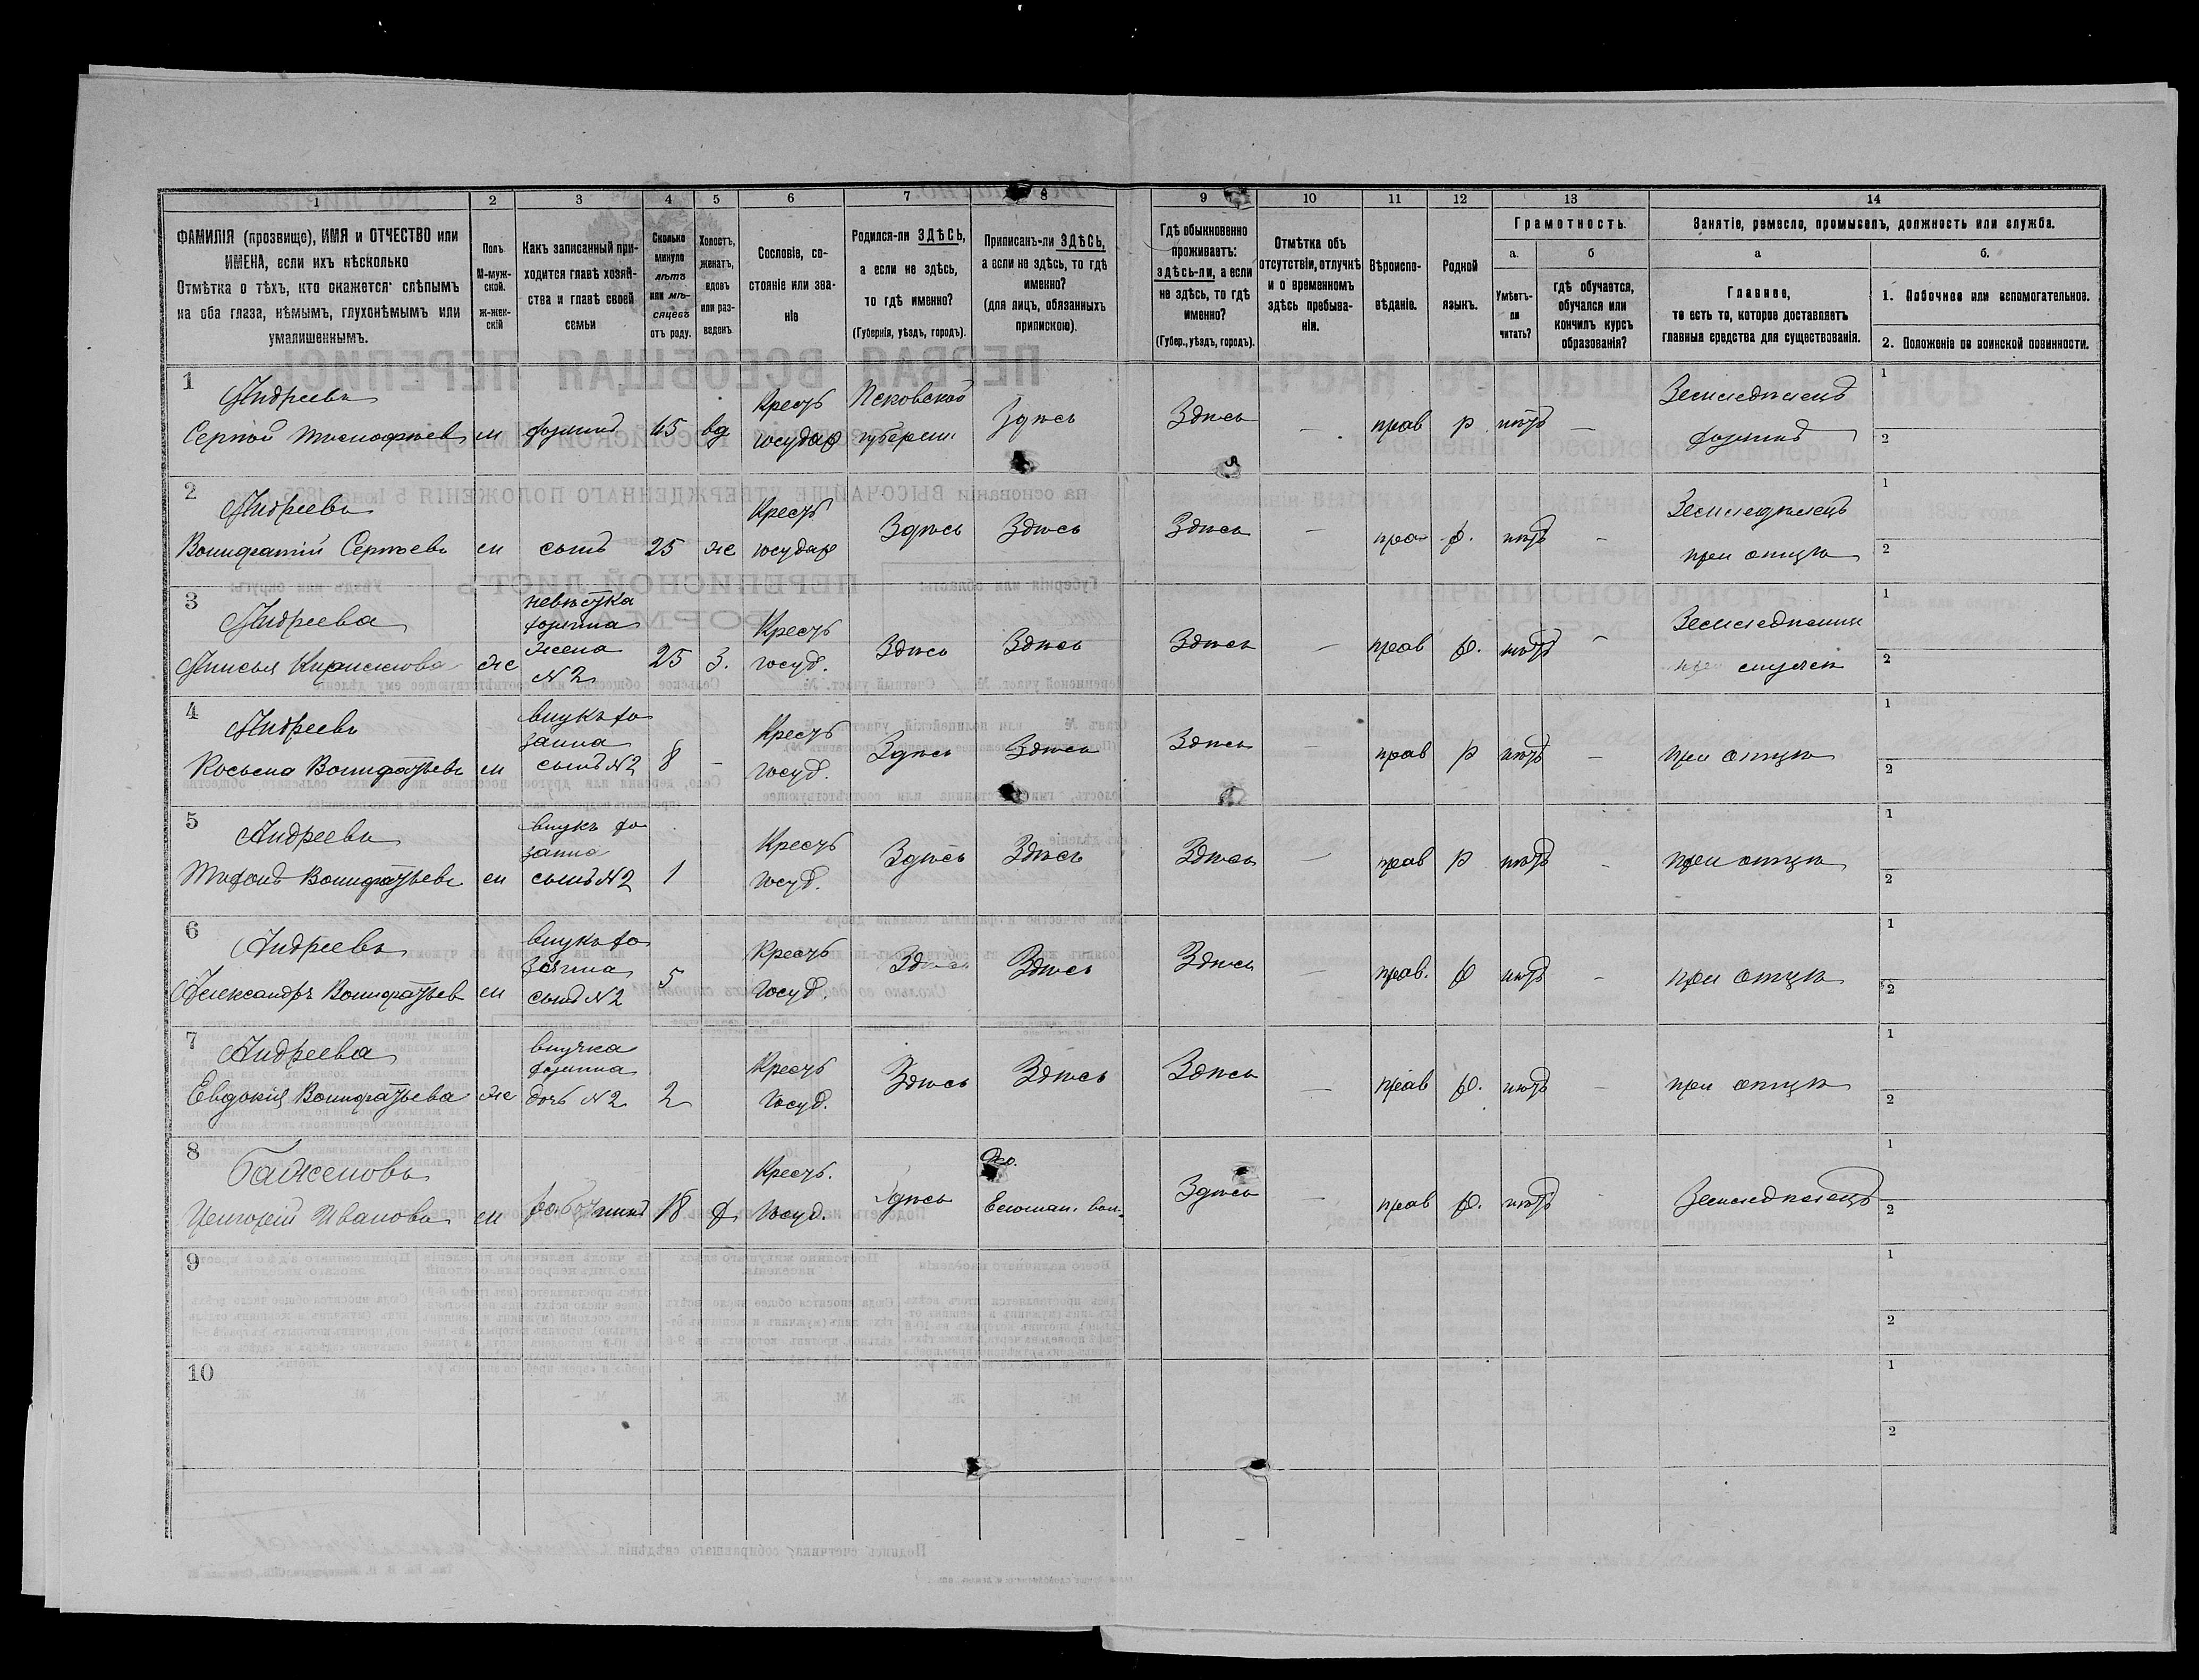 1 2 3 4 5 6 7 8 9 10 11 12 13 14
ФАМИЛІЯ (прозвище), ИМЯ и ОТЧЕСТВО или
ИМЕНА, если ихъ нѣсколько
Отмѣтка о тѣхъ, кто окажется слѣпымъ
на оба глаза, нѣмымъ, глухонѣмымъ или
умалишеннымъ.
Полъ
М-муж-
ской.
ж-жен-
скій
Какъ записанный при-
ходится главѣ хозяй-
ства и главѣ своей
семьи
Сколько
минуло
лѣтъ
или мѣ-
сяцевъ
отъ роду.
Холостъ,
женатъ,
вдовъ
или раз-
веденъ.
Сословіе, со-
стояніе или зва-
ніе
Родился-ли ЗДѢСЬ,
а если не здѣсь,
то гдѣ именно?
(Губернія, уѣздъ, городъ).
Приписанъ-ли ЗДѢСЬ,
а если не здѣсь, то гдѣ
именно?
(для лицъ, обязанныхъ
припискою).
Гдѣ обыкновенно
проживаетъ:
здѣсь-ли, а если
не здѣсь, то гдѣ
именно?
(Губер., уѣздъ, городъ).
Отмѣтка объ
отсутствіи, отлучкѣ
и о временномъ
здѣсь пребыва-
ніи.
Вѣроиспо-
вѣданіе.
Родной
языкъ.
Грамотность.
а.
Умѣетъ-
ли
читать?
б
гдѣ обучается,
обучался или
кончилъ курсъ
образованія?
Занятіе, ремесло, промыселъ, должность или служба.
а
Главное,
то есть то, которое доставляетъ
главныя средства для существованія.
б.
1. Побочное или вспомогательное.
2. Положеніе по воинской повинности.
1 Андреевъ Крестъ Псковской Земледѣлецъ 1
Сергѣй м хозяинъ 65 вд государ губерніи Здѣсь Здѣсь - прав р нѣтъ - хозяинъ 2
2 Андреевъ Крестъ Земледѣлецъ 1
Вонифатій Сергѣевъ м сынъ 25 ж государ Здѣсь Здѣсь Здѣсь - прав р. нѣтъ - при отцѣ 2
3 Андреева невѣстка 1
хозяина Крестъ
Анисья Кирилова ж жена 25 З. госуд. Здѣсь Здѣсь Здѣсь - прав р. нѣтъ -
N 2 2
4 Андреевъ внукъ хо Крестъ 1
зяина
Косьма Вонифатьевъ м сынъ N 2 8 - госуд. Здѣсь Здѣсь Здѣсь - прав р нѣтъ - при отцѣ 2
5 Андреевъ внукъ хо Крестъ 1
зяина
Трифонъ Вонифатьевъ м сынъ N 2 1 госуд. Здѣсь Здѣсь Здѣсь - прав р нѣтъ - при отцѣ 2
6 Андреевъ внукъ хо Крестъ 1
зяина
Александръ Вонифатьев м сынъ N 2 5 госуд. Здѣсь Здѣсь Здѣсь - прав. р нѣтъ - при отцѣ 2
7 Андреева внучка Крестъ 1
хозяина
Евдокія Вонифатьева ж дочь N 2 2 госуд. Здѣсь Здѣсь Здѣсь - прав р. нѣтъ - при отцѣ 2
8 Баженовъ Крестъ. 1
Григорій Ивановъ м работникъ 18 х госуд. Здѣсь вол. Здѣсь - прав р. нѣтъ - Земледѣлецъ 2
9 1
2
10 1
2